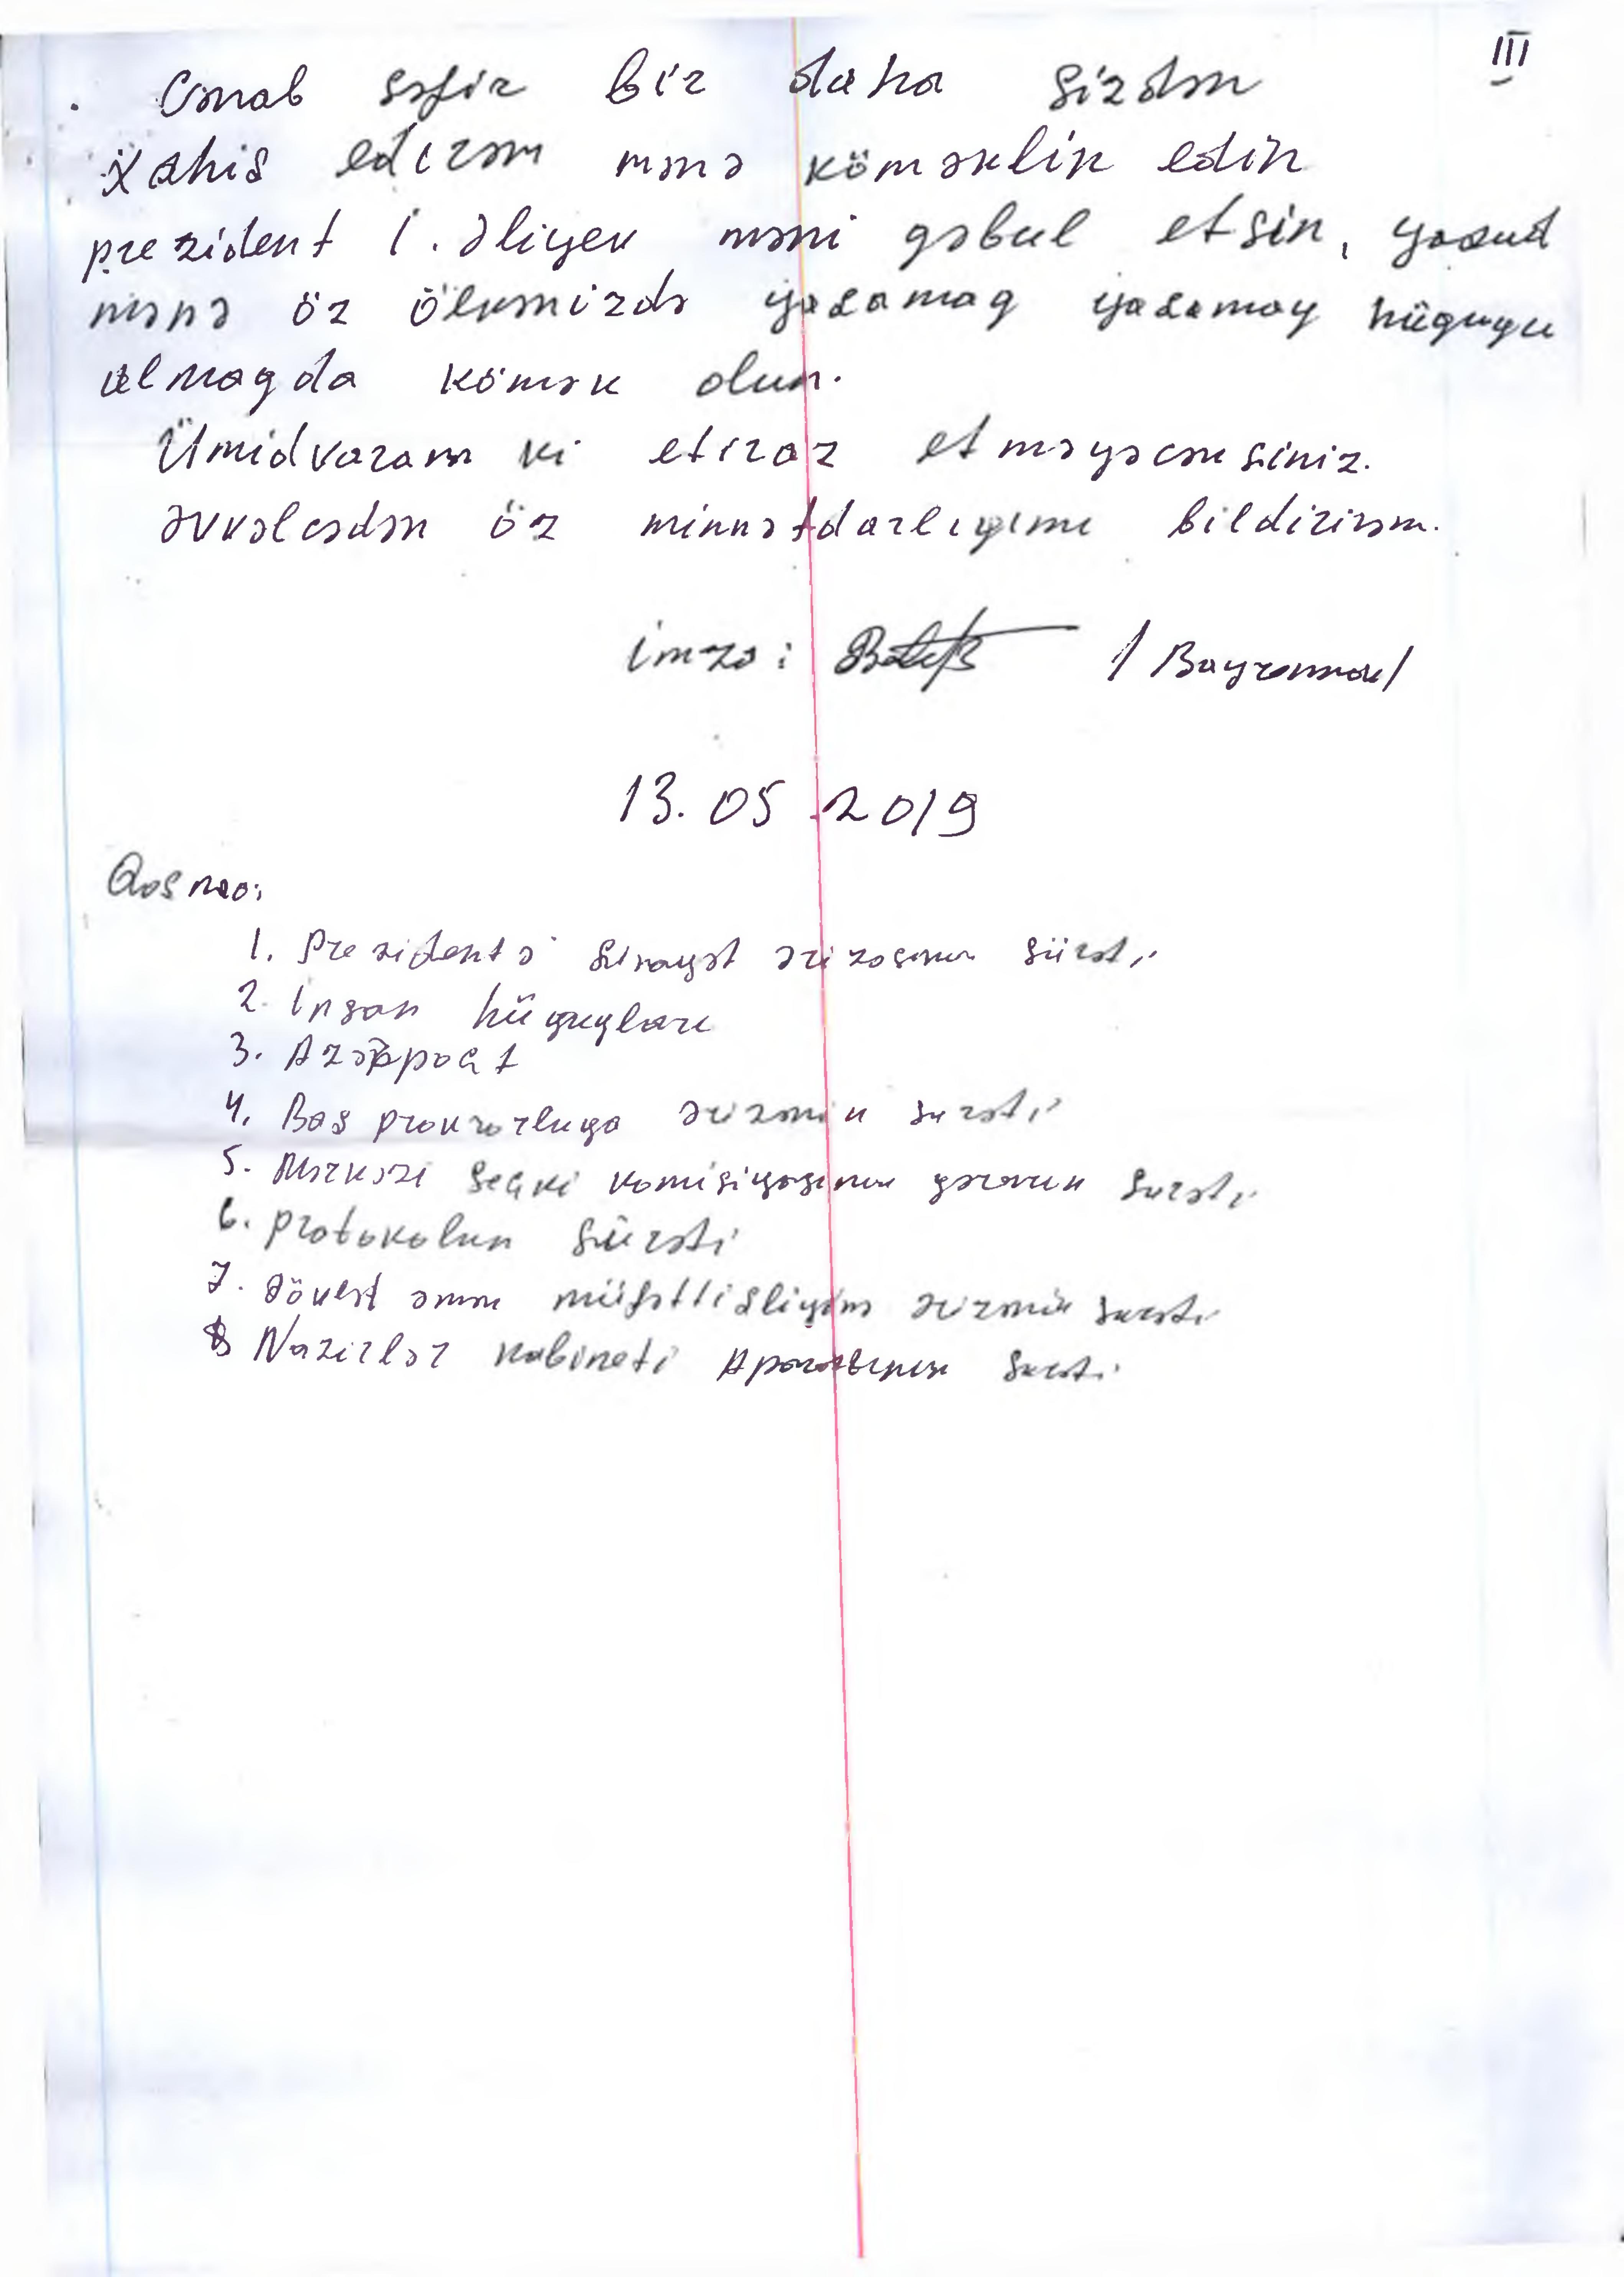 III
Cənab səfir bir daha Sizdən
Xahiş edirəm mənə köməklik edin
prezident İ. Əliyev məni qəbul etsin, yaxud
mənə öz ölkəmizdə yaşamaq yaşamaq hüququ
almaqda kömək olun.
Ümidvaram ki etiraz etməyəcəksiniz.
Əvvəlcədən öz minnətdarlığımı bildirirəm.
imza: / Bayramov/
13.05.2019
Qoşma:
1. Prezidentə şikayət ərizəsinin sürəti
2. İnsan hüquqları
3. Azərpoçt
4. Baş prokrorluğa ərizənin surəti
5. Mərkəzi Seçki komisiyasının qərarın Surəti
6. protokolun Sürəti
7. Dövlət əmək müfəttişliyinə ərizənin surəti
8 Nazirlər kabineti Aparatının Surəti